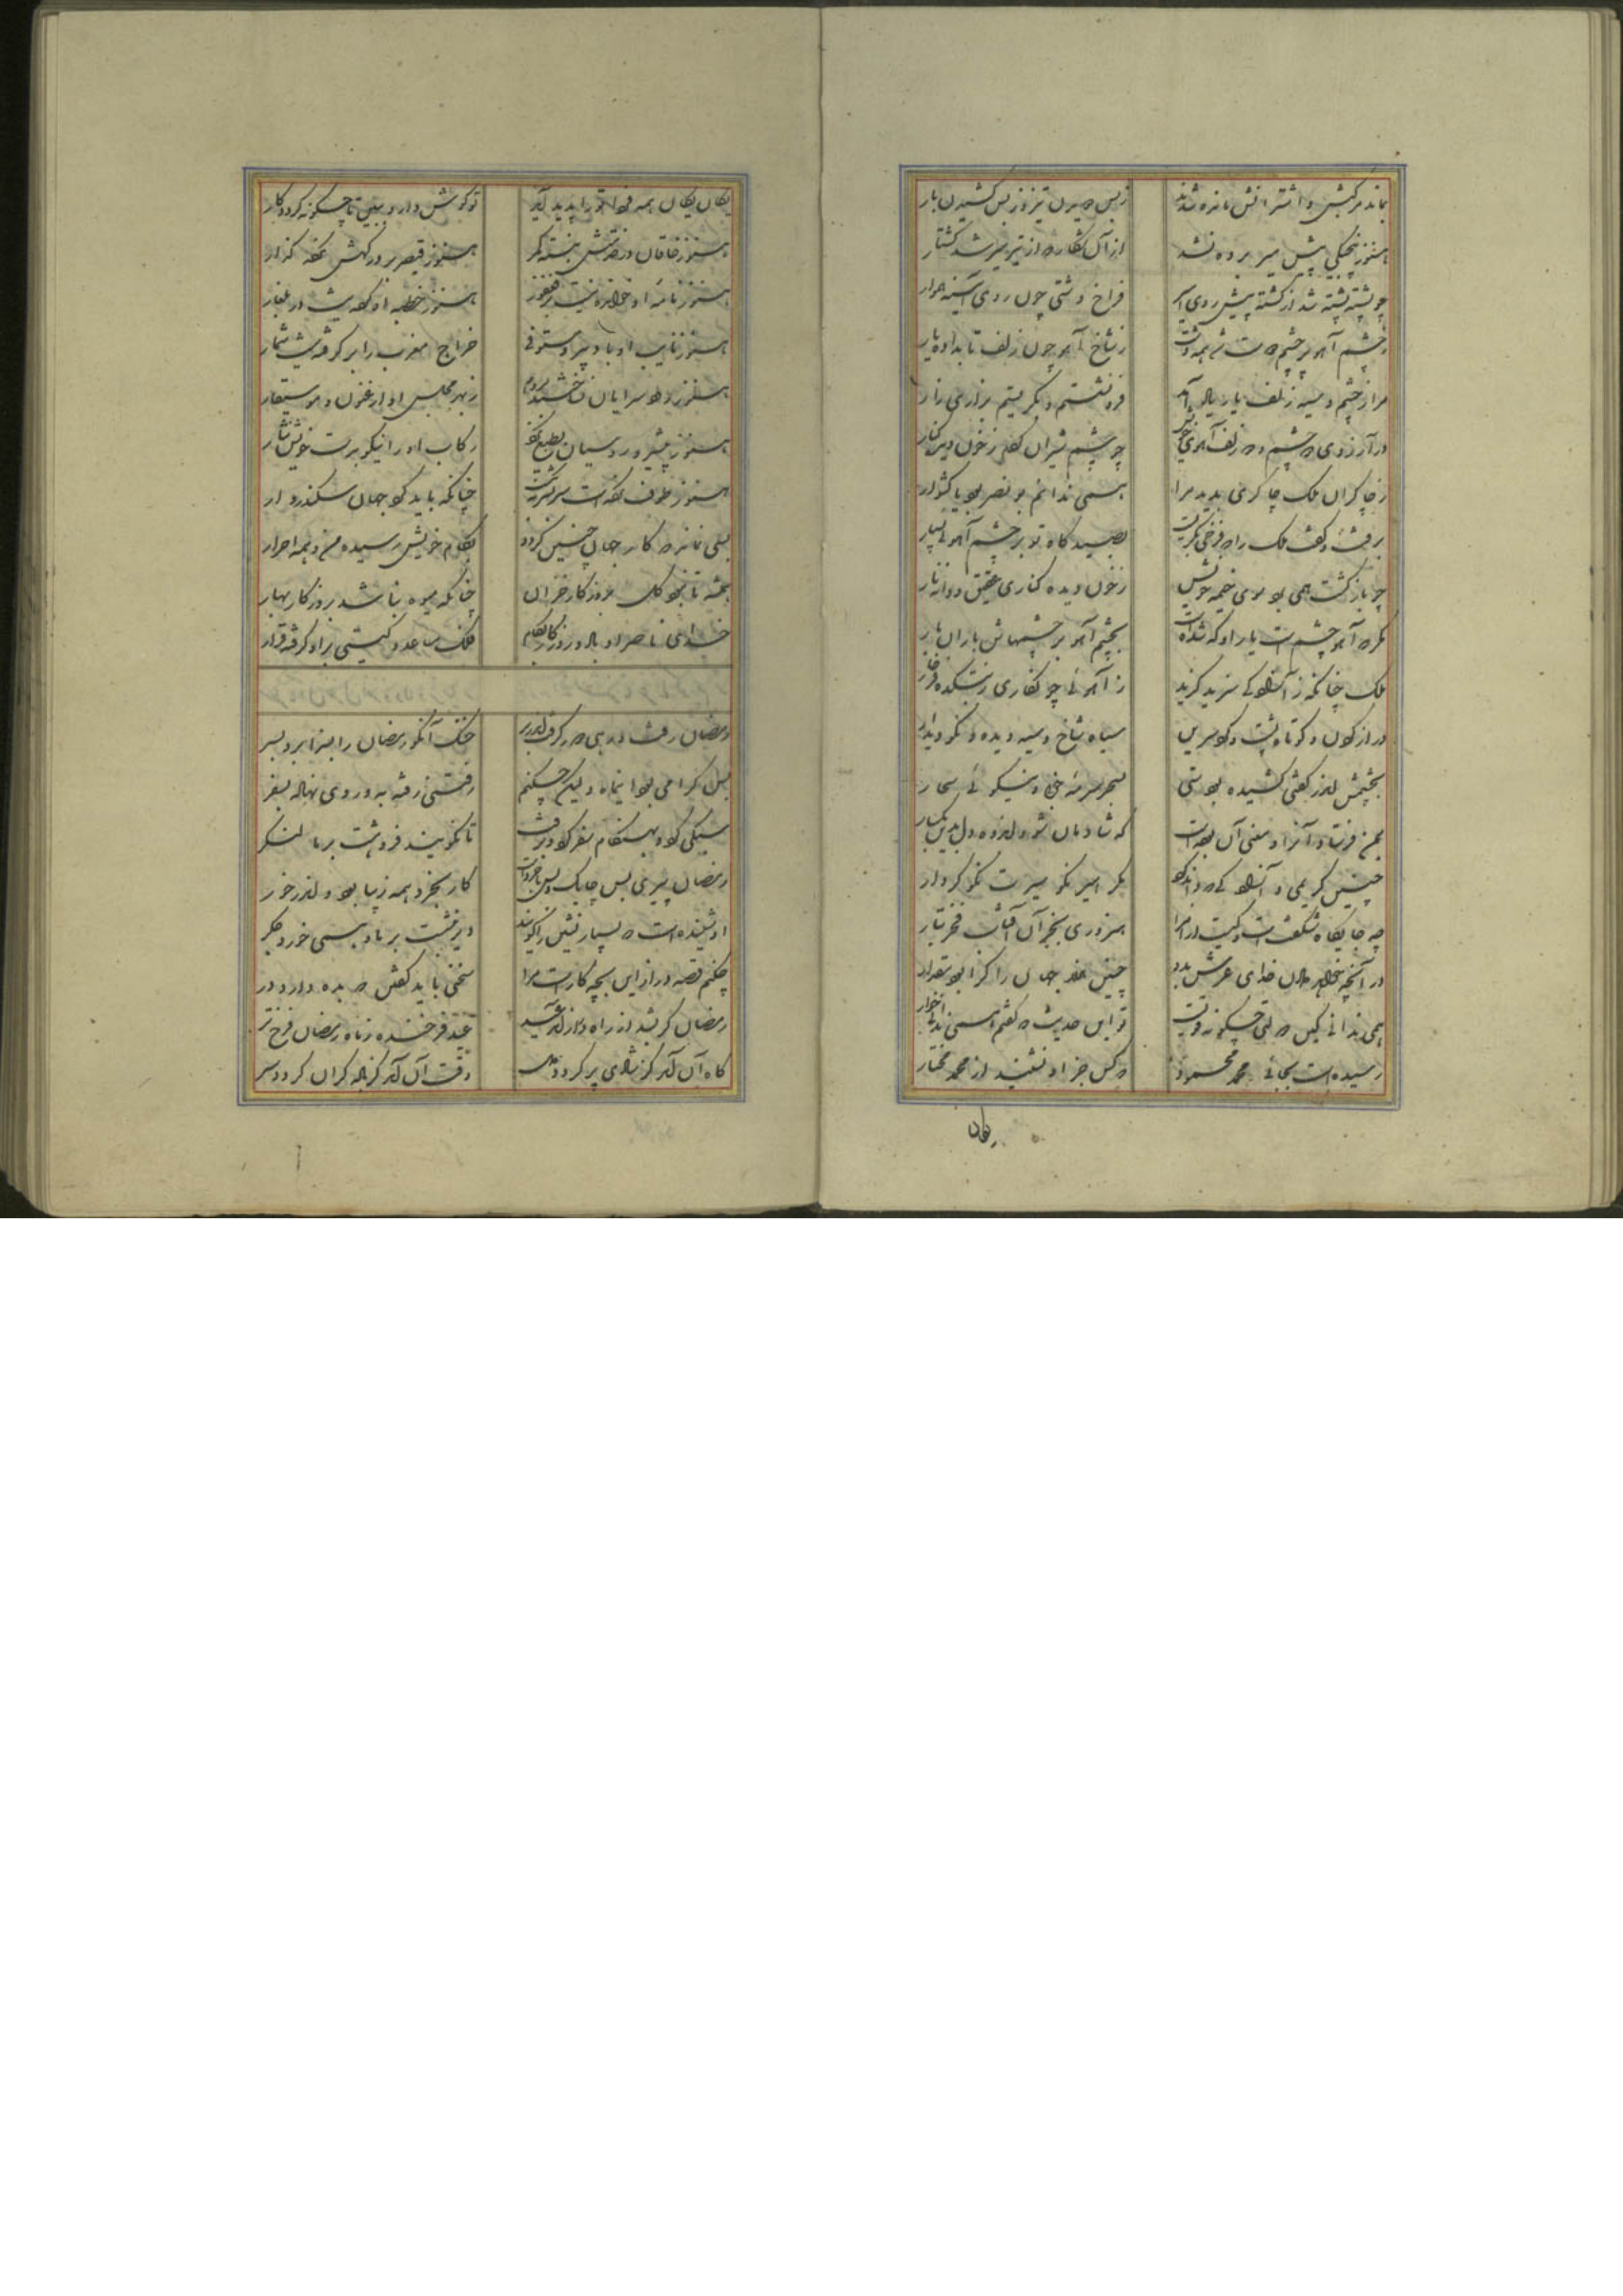 بماند مرکبش و اشترانش مانده شدند زبس دویدن تیز و زبس کشیدن بار
هنوز پنجیکی پیش میر برده نشد از آن شکار که از تیر میر شد کشتار
چو پشته پشته شد از کشته پیش روی امیر فراخ دشتی چون روی آینه هموار
ز چشم آهو پر چشم دوست شد همه دشت ز شاخ آهو چون زلف تابداده یار
مرا ز چشم و سیه زلف یار یاد آمد فرو نشستم و بگریستم بزاری زار
در آرزوی دو چشم و دو زلف آهوی خویش چو چشم شیران کردم ز خون دیده کنار
ز چاکران ملک چاکری بدید مرا همی ندانم بونصر بود یا کشوار
برفت و گفت ملک را که فرخی بگریست بصیدگاه تو بر چشم آهوی بسیار
چو بازگشت همی بود سوی خیمه خویش ز خون دیده کناری عقیق و دانه نار
مگر که آهو چشم است یار او که شده است بچشم آهو بر چشمهاش باران بار
ملک چنانکه ز آزادگی سزید گزید ز آهوان چو نگاری ز بتکده فرخار
دراز گردن و کوتاه پشت و گرد سرین سیاه شاخ و سیه دیده و نکو دیدار
بچشمش اندر گفتی کشیده بود ستی بسحر سرمه خوبی و نیکوئی سحار
بمن فرستاد آنرا و معنی آن بوده است که شادمان شو و اندوه دل بدین بگسار
چنین کریمی و آزادگی که داند کرد مگر امیر نکو سیرت نکو کردار
چه جایگاه شگفت است و کیست از امرا سزوری بجز آن آفتاب فخر تبار
در آنچه خواهد دادن خدای عرش بدو چنین هزار جهان را کرا بود مقدار
همی ندانی کاین دولتی چگونه قویست تو این حدیث که گفتم همی نداری خوار
رسیده است بجائی محمد محمود که کس جز او نشنید از محمد مختار
یکان
یکان یکان همه فردا ترا پدید آید تو گوش دار و ببین تا چگونه گردد کار
هنوز خاقان در خدمتش نبسته کمر هنوز قیصر بر درگهش نکرده گذار
هنوز نامه او خوانده نیست بر فغفور هنوز خطبه او کرده نیست در بلغار
هنوز نایب او با دبیر و مستوفی خراج مغرب را برگرفته نیست شمار
هنوز رود سرایان نساختند بروم ز بهر مجلس او ارغنون و موسیقار
هنوز پیشرو روسیان بطبع نکرد رکاب او را نیکو بدست خویش نثار
هنوز طوف نکرده است سربسر چنانکه باید گرد جهان سکندر وار
بسی نماند که کار جهان چنین گردد بکام خویش رسیده من و همه احرار
همیشه تا نبود گل بروزگار خزان چنانکه میوه نباشد بروزگار بهار
خدای ناصر او باد و روزگار بکام فلک مساعد و گیتی بر او گرفته قرار
رمضان رفت و رهی دور گرفت اندر بر خنک آنکو رمضان را بسزا برد بسر
بس گرامی بود این ماه ولیکن چکنم رفتنی رفته به و روی نهاده بسفر
سبکی کرد و بهنگام سفر کرد و برفت تا نگویند فروهشت بر ما لنگر
رمضان پیری بس چابک و بس باخرد است کار بخرد همه زیبا بود و اندر خور
او شنیده است که بسیار نشین را گویند دیر ننشست بر ما و بسی خورد جگر
چکنم قصه دراز این بچه کار است مرا سخنی باید گفتن که به ده دارد در
رمضان گر بشد از راه فراز آمد عید عید فرخنده ز ماه رمضان فرخ تر
گاه آن آمد کز شادی پر گردد دل وقت آن آمد کز باده گران گردد سر